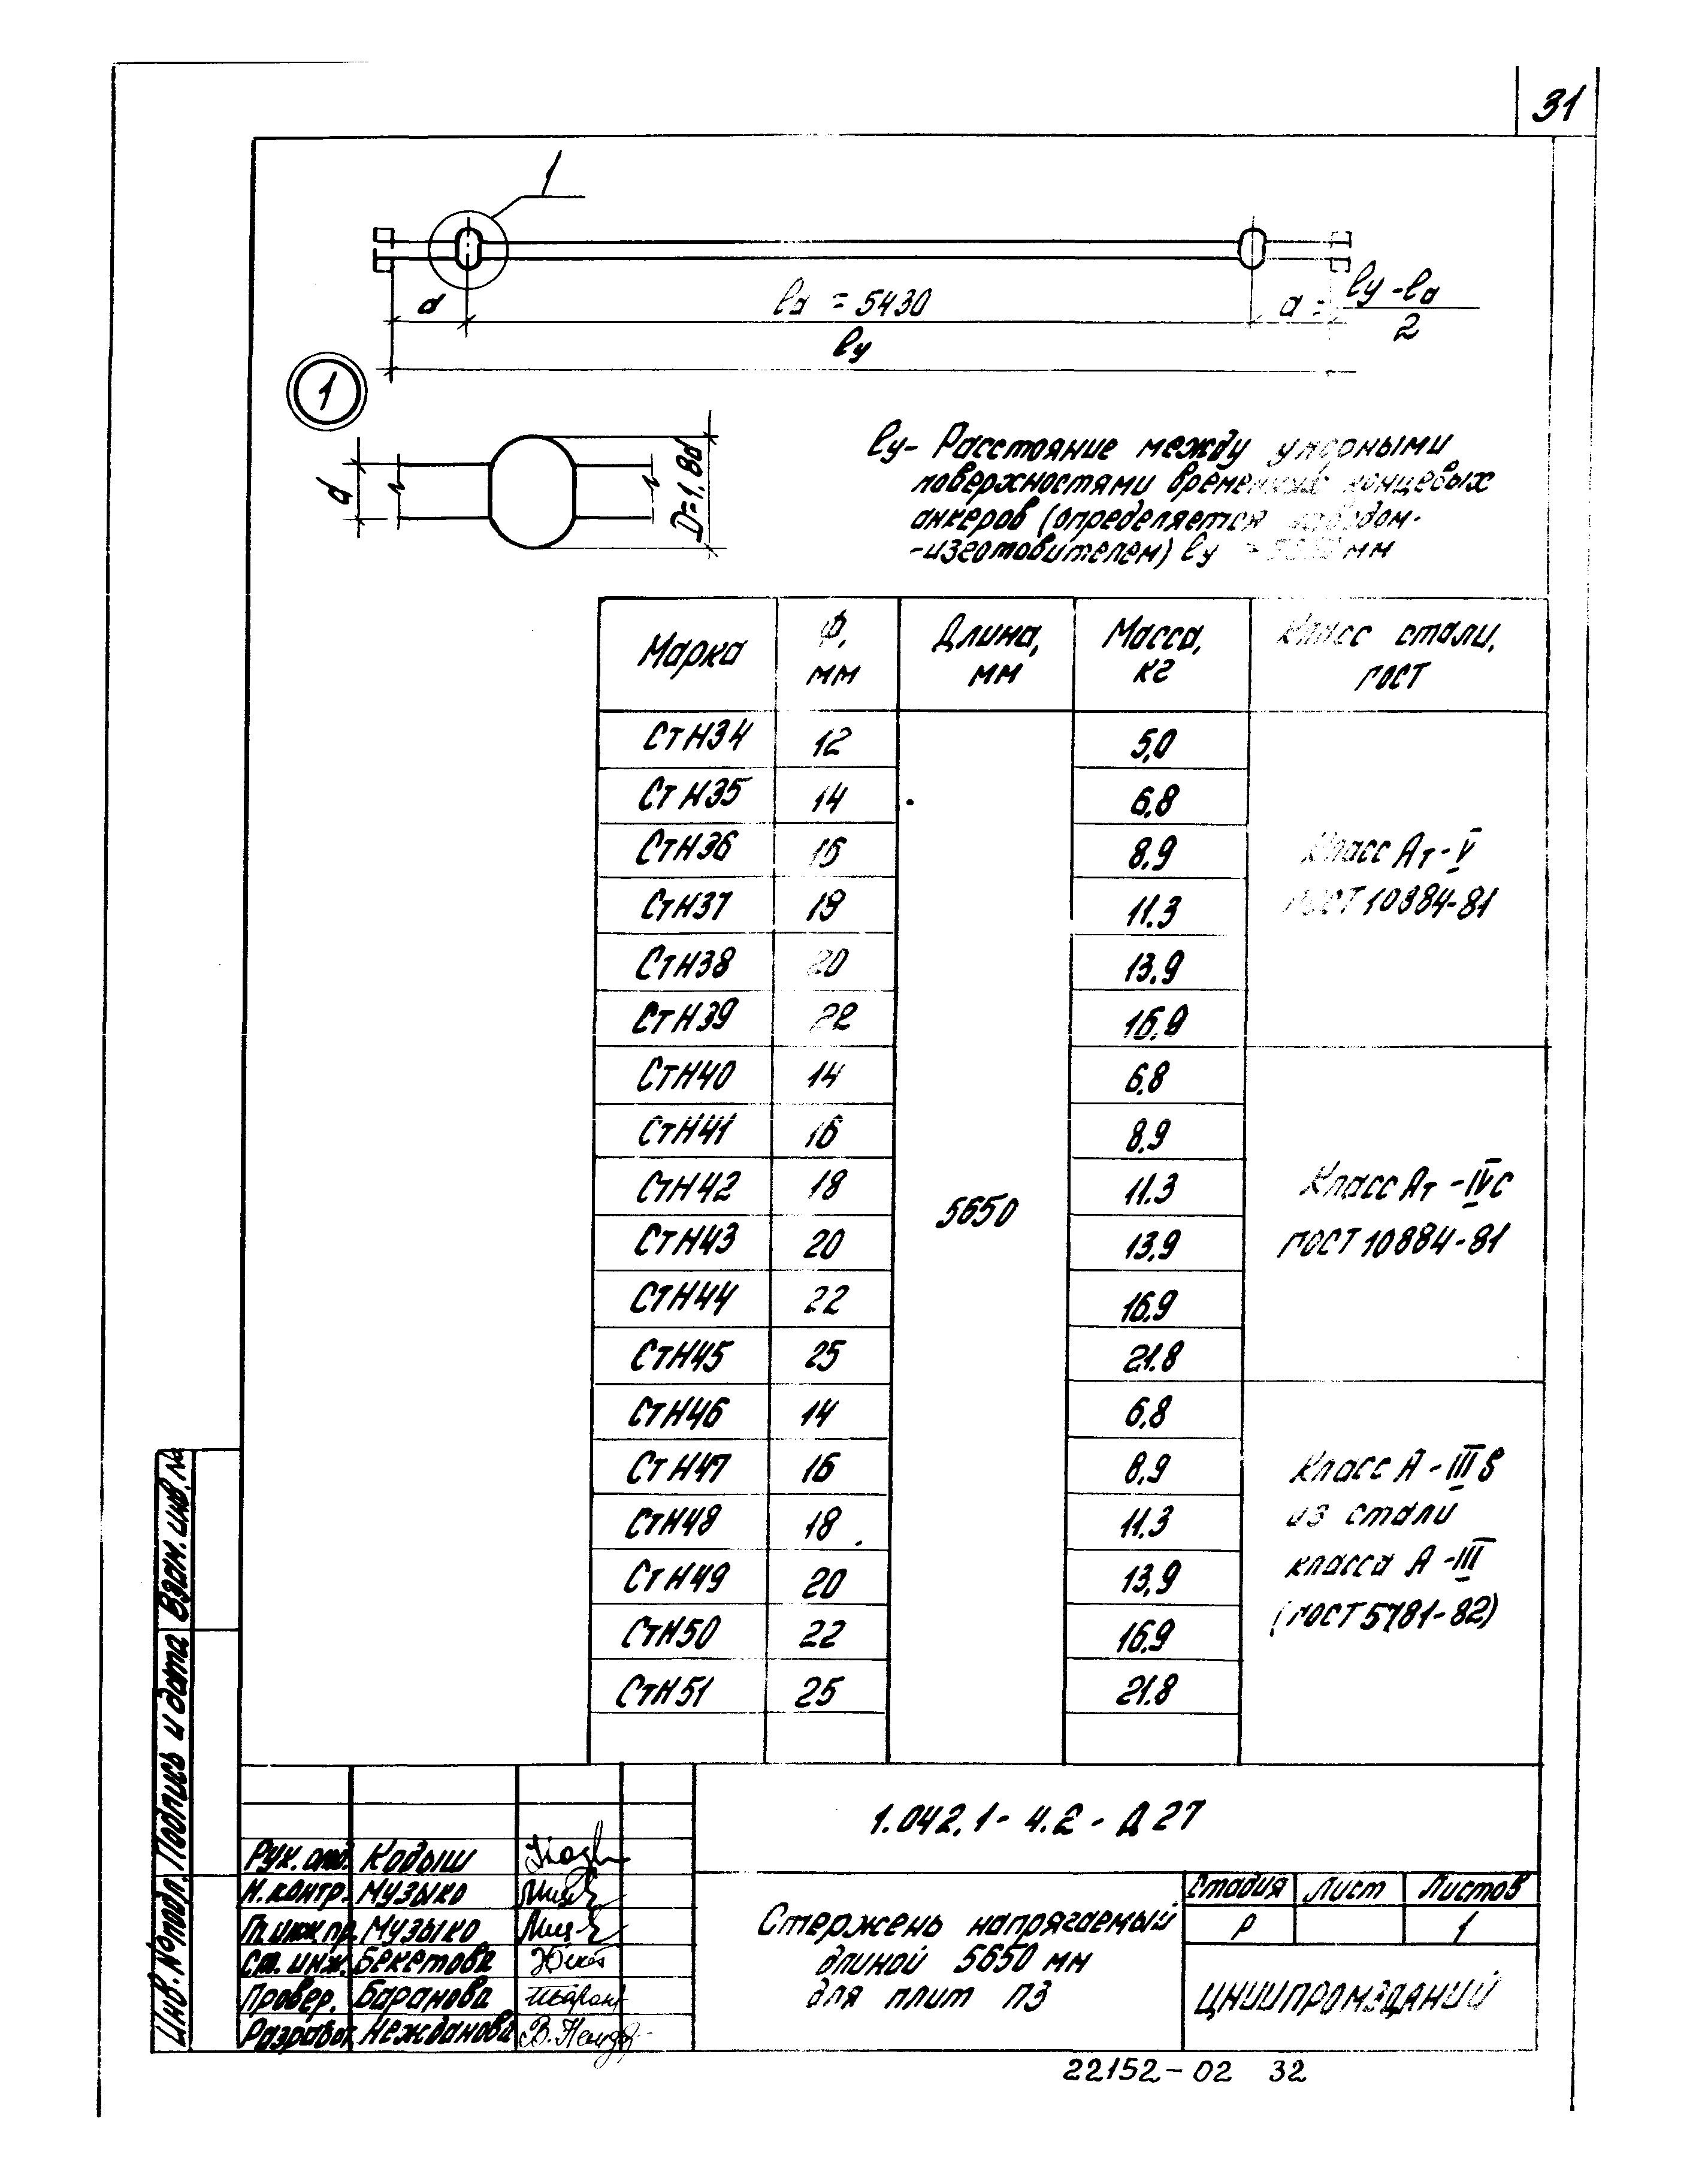 31
1
a
lа = 5430
a = (lу - lа) / 2
lу
1
d
D=1,8d
lу- Расстояние между упорными
поверхностями временных концевых
анкеров (определяется заводом-
-изготовителем) lу мм
Марка | Ф, мм | Длина, мм | Масса, кг | Класс стали, ГОСТ
СтН34 | 12 | 5650 | 5,0 | Класс Ат-V ГОСТ 10884-81
СтН35 | 14 | 6,8
СтН36 | 16 | 8,9
СтН37 | 18 | 11.3
СтН38 | 20 | 13,9
СтН39 | 22 | 16,9
СтН40 | 14 | 6,8 | Класс Ат-IVС ГОСТ 10884-81
СтН41 | 16 | 8,9
СтН42 | 18 | 11.3
СтН43 | 20 | 13,9
СтН44 | 22 | 16,9
СтН45 | 25 | 21.8
СтН46 | 14 | 6,8 | Класс А-IIIв из стали класса А-III (ГОСТ 5781-82)
СтН47 | 16 | 8,9
СтН48 | 18 | 11.3
СтН49 | 20 | 13,9
СтН50 | 22 | 16.9
СтН51 | 25 | 21.8
Взам. инв. №
Подпись и дата
Инв. № подл.
1.042.1-4.2-Д27
Рук. отд. Кодыш
Н. контр. Музыко
Гл. инж. пр. Музыко
Ст. инж. Бекетова
Провер. Баранова
Разработ. Нежданова
Стержень напрягаемый
длиной 5650 мм
для плит П3
Стадия Лист Листов
Р 1
ЦНИИПРОМЗДАНИЙ
22152-02 32